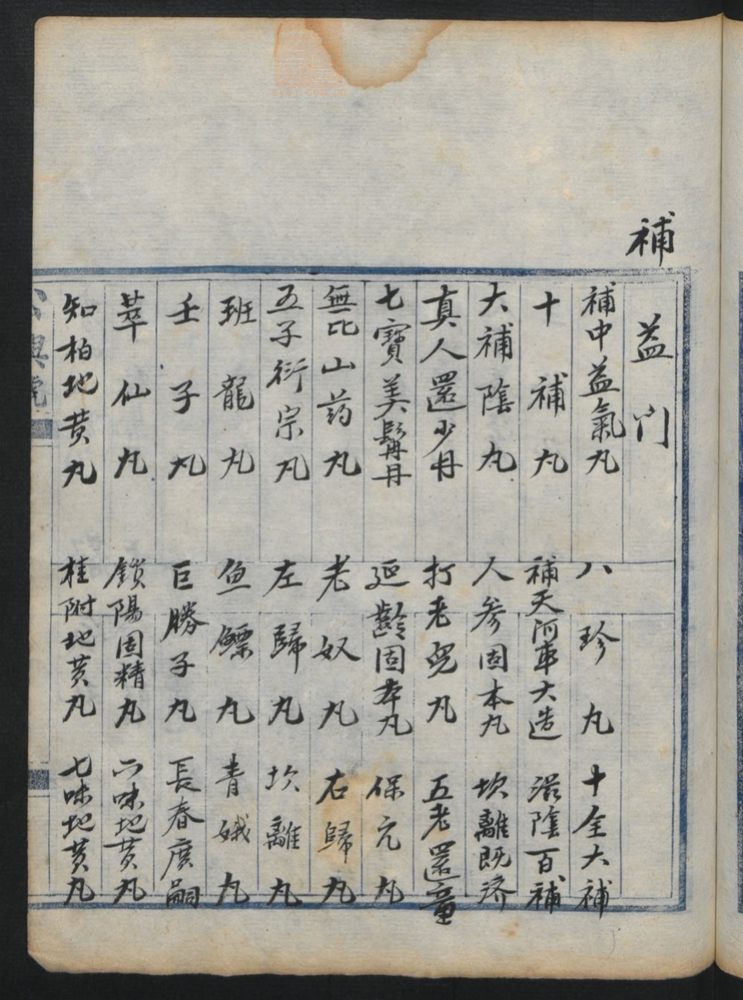 補益門
補中益氣丸 八珍丸 十全大補
十補丸 補天河車大造 滋陰百補
大補陰丸 人參固本丸 坎離既濟
真人還少丹 打老兒丸 五老還童
七寶美髯丹 延齡固本丸 保元丸
無比山药丸 老奴丸 右歸丸
五子衍宗丸 左歸丸 坎離丸
班龍丸 魚鰾丸 青娥丸
壬子丸 巨勝子丸 長春廣嗣
萃仙丸 鎖陽固精丸 六味地黄丸
知柏地黄丸 桂附地黄丸 七味地黄丸